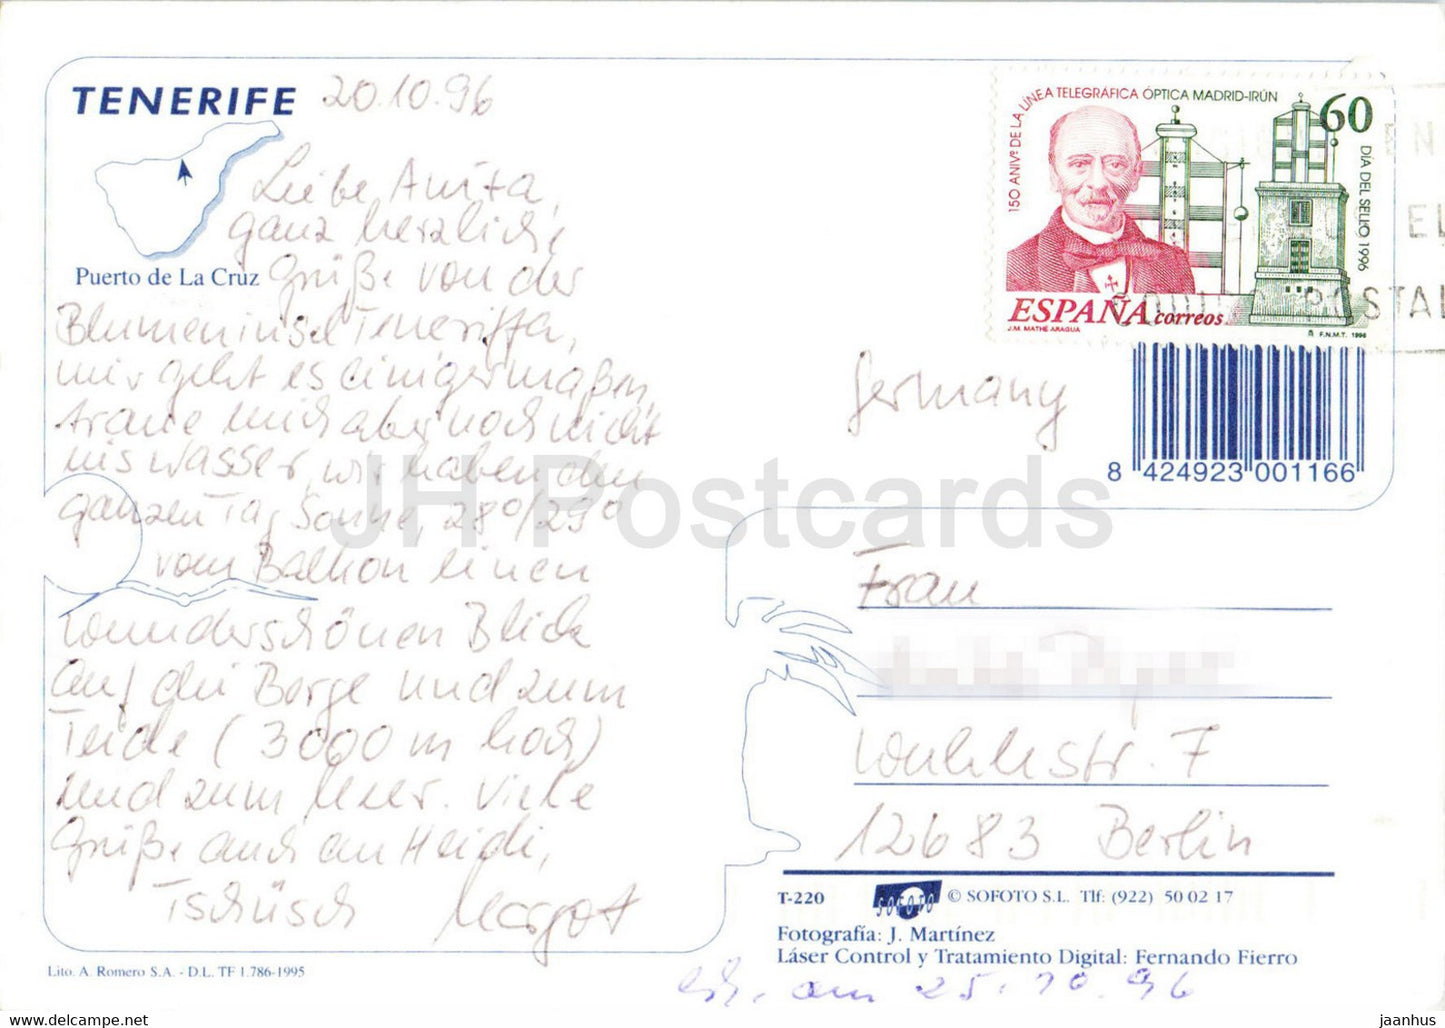 TENERIFE
20.10.96
Puerto de La Cruz
Liebe Anita,
ganz herzliche
Grüße von der
Blumeninsel Teneriffa,
mir geht es einigermaßen,
traue mich aber noch nicht
ins Wasser, wir haben den
ganzen Tag Sonne, 28°/29°
vom Balkon einen
wunderschönen Blick
auf die Berge und zum
Teide (3000 m hoch)
und zum Meer. Viele
Grüße auch an Heidi,
Tschüsch Margot
Lito. A. Romero S.A. - D.L. TF 1.786-1995
150 ANIVº DE LA LÍNEA TELEGRÁFICA ÓPTICA MADRID-IRÚN
60
DÍA DEL SELLO 1996
ESPAÑA correos
J.M. MATHÉ ARAGUA
F.N.M.T. 1996
POSTAL
Germany
8 424923 001166
JH Postcards
Frau
str. 7
12683 Berlin
T-220 SOFOTO © SOFOTO S.L. Tlf: (922) 50 02 17
Fotografía: J. Martínez
Láser Control y Tratamiento Digital: Fernando Fierro
am 25.10.96
jaanhus
www.delcampe.net